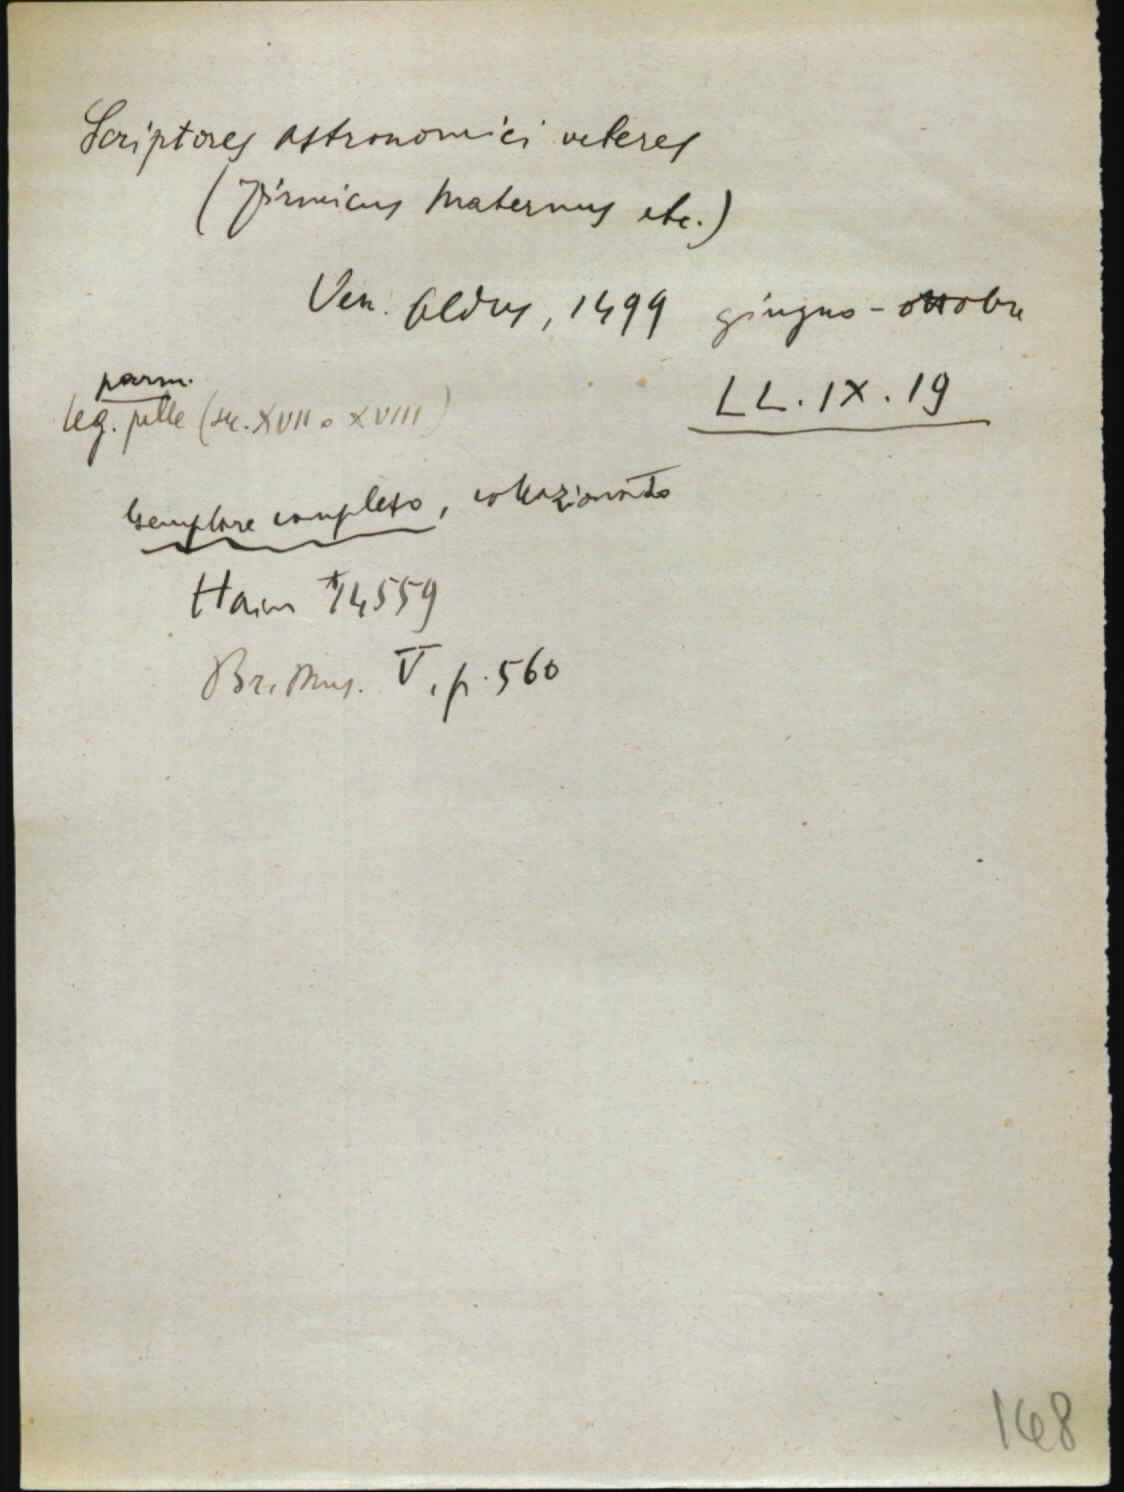 Scriptores astronomici veteres
(Firmicus Maternus etc.)
Ven. Aldus, 1499 giugno - ottobre
parm.
LL. IX. 19
leg. pelle (sec. XVII o XVIII)
Esemplare completo, collazionato
Hain *14559
Br. Mus. V, p. 560
168